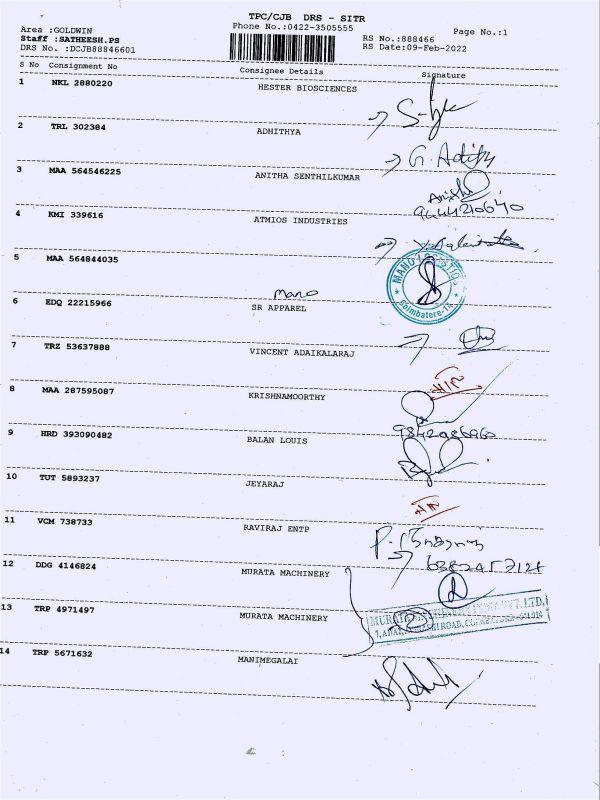 TPC/CJB DRS - SITR
Area :GOLDWIN
Phone No.:0422-3505555
Page No.:1
Staff :SATHEESH.PS
RS No.:888466
DRS No. :DCJB88846601
RS Date:09-Feb-2022
S No Consignment No Consignee Details Signature
1 NKL 2880220 HESTER BIOSCIENCES
2 TRL 302384 ADHITHYA
G. Adithy
3 MAA 564546225 ANITHA SENTHILKUMAR
9644210640
4 KMI 339616 ATMIOS INDUSTRIES
5 MAA 564844035
mano
6 EDQ 22215966 SR APPAREL
Coimbatore-14
7 TRZ 53637888 VINCENT ADAIKALARAJ
8 MAA 287595087 KRISHNAMOORTHY
9 HRD 393090482 BALAN LOUIS
10 TUT 5893237 JEYARAJ
11 VCM 738733 RAVIRAJ ENTP
12 DDG 4146824 MURATA MACHINERY
13 TRP 4971497 MURATA MACHINERY
14 TRP 5671632 MANIMEGALAI